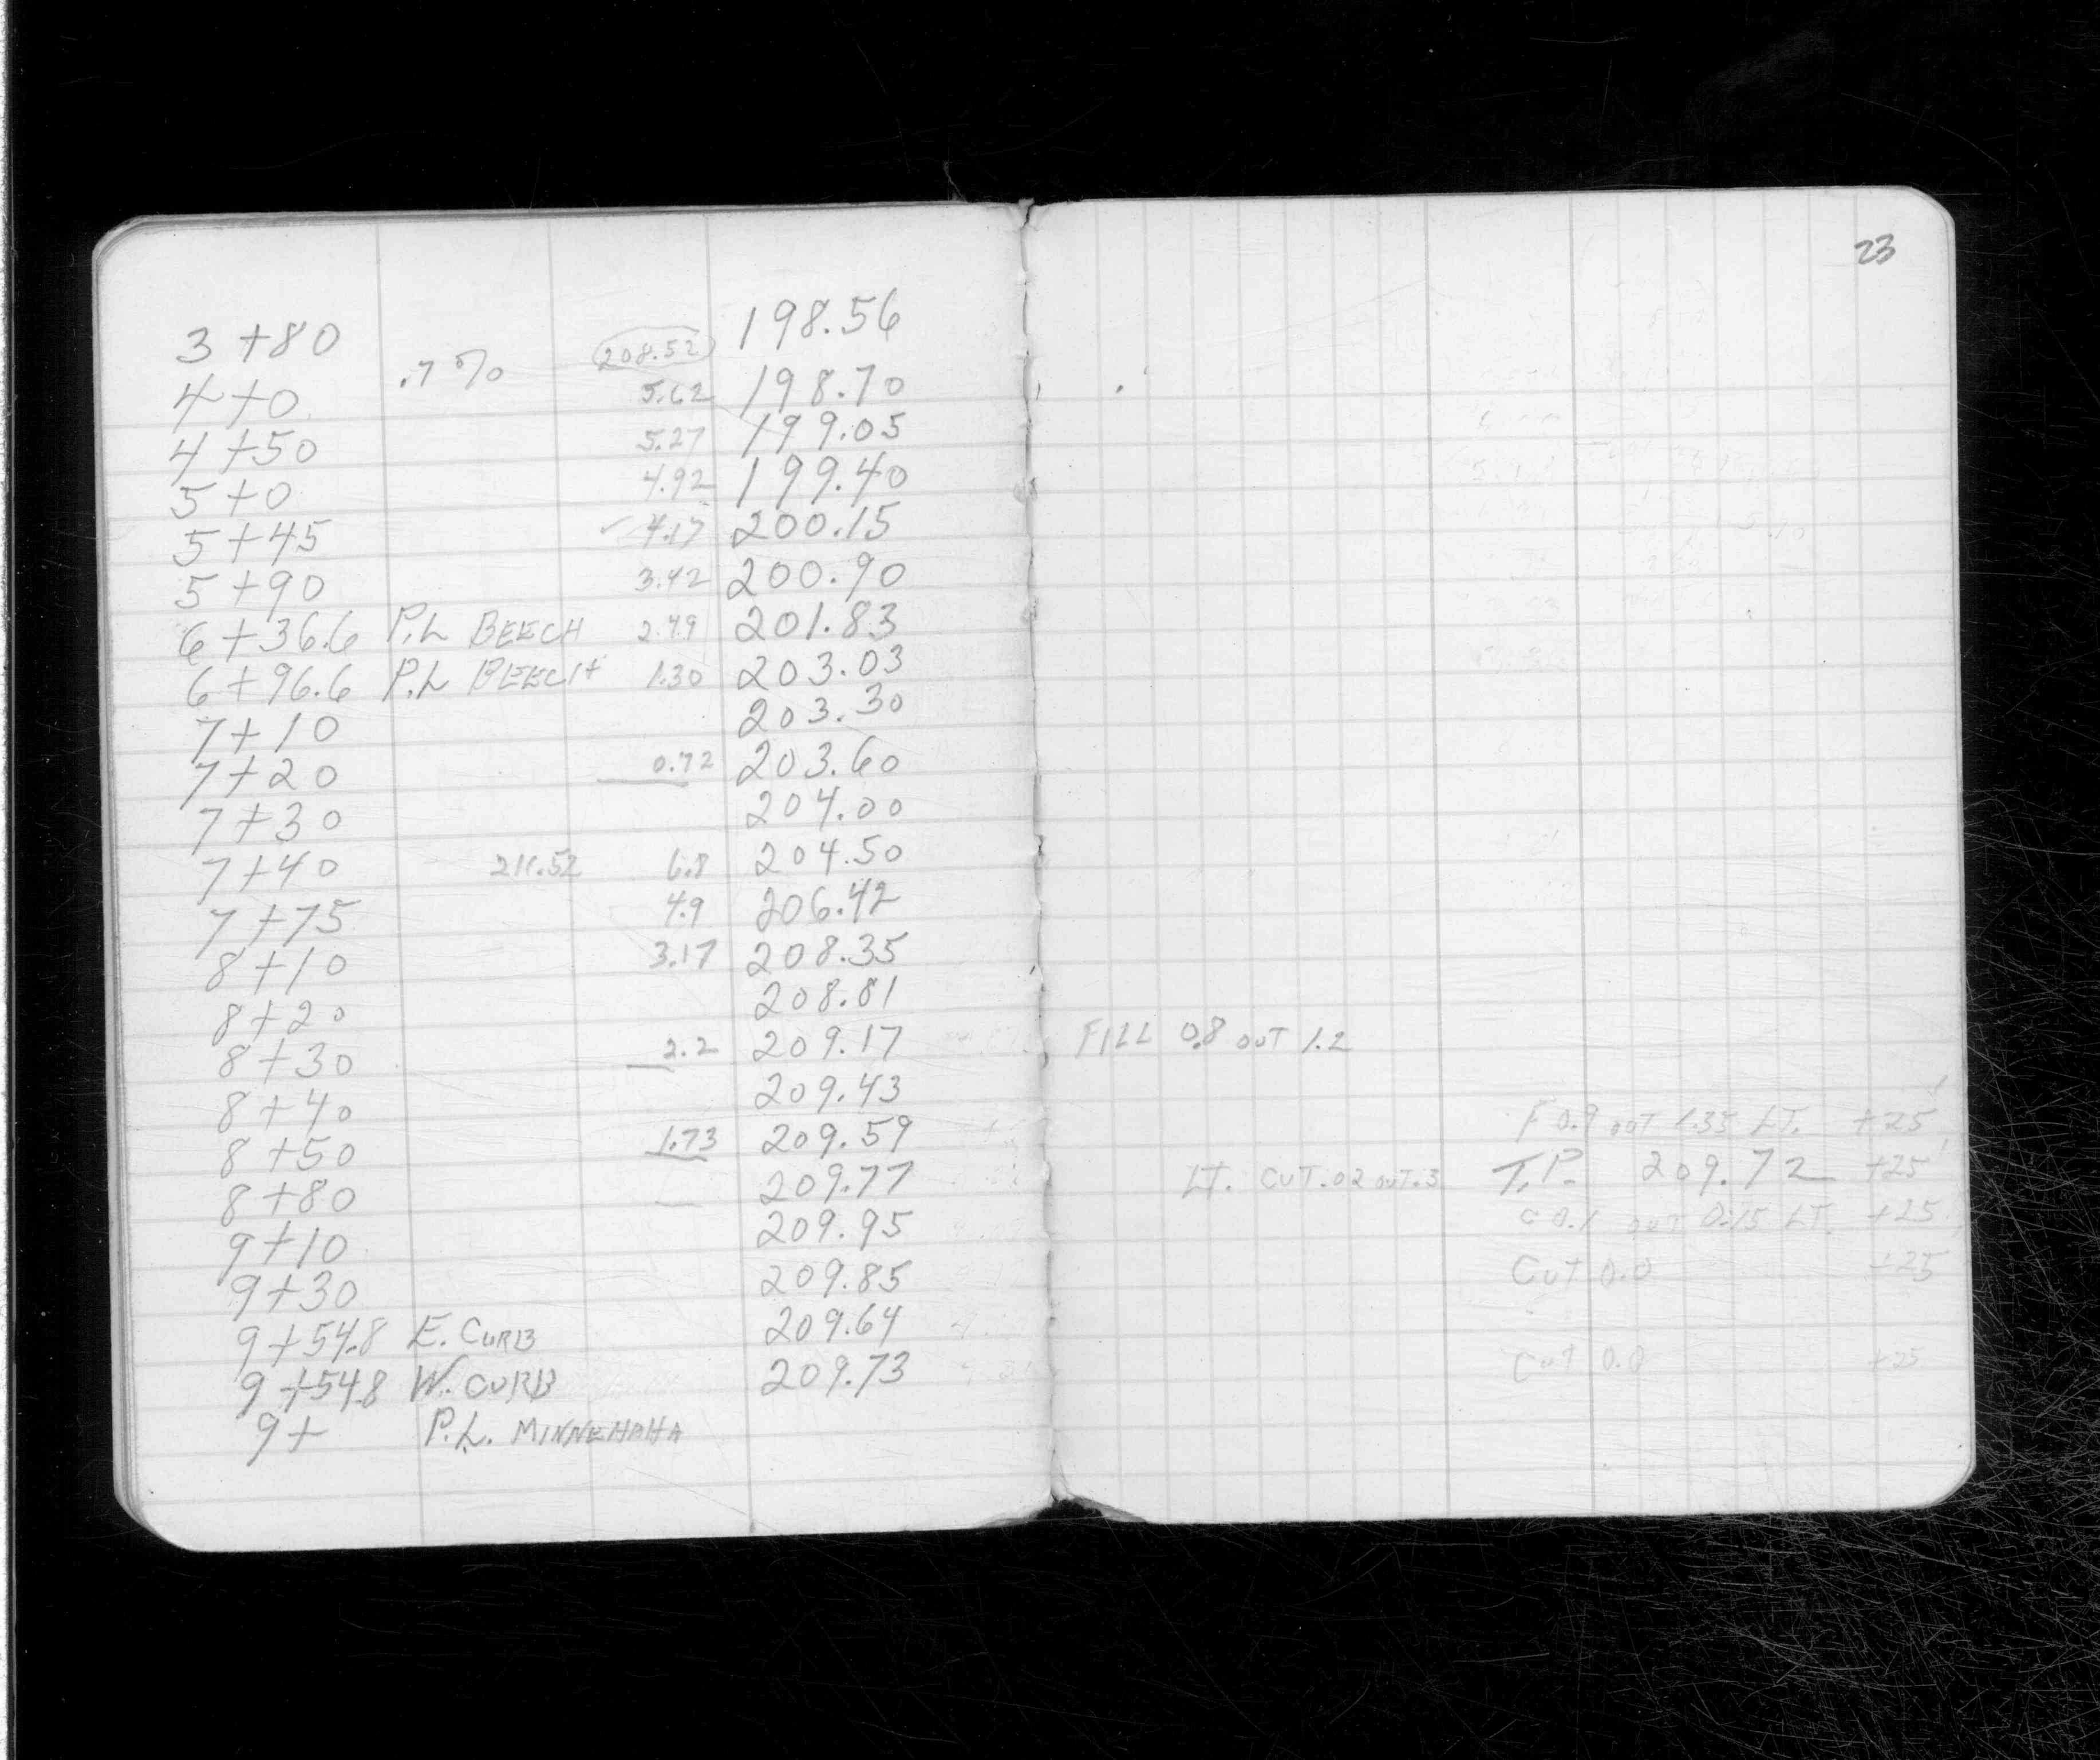 23
3+80 198.56
.7% 208.52
4+0 5.62 198.70
4+50 5.27 199.05
5+0 4.92 199.40
5+45 ✓ 4.17 200.15
5+90 3.42 200.90
6+36.6 P.L BEECH 2.49 201.83
6+96.6 P.L BEECH 1.30 203.03
7+10 203.30
7+20 0.72 203.60
7+30 204.00
7+40 211.52 6.8 204.50
7+75 4.9 206.42
8+10 3.17 208.35
8+20 208.81
8+30 2.2 209.17
8+40 209.43
8+50 1.73 209.59
8+80 209.77
9+10 209.95
9+30 209.85
9+54.8 E. CURB 209.64
9+54.8 W. CURB 209.73
9+ P.L. MINNEHAHA
FILL 0.8 OUT 1.2
F 0.9 OUT 1.35 LT. +25
LT. CUT .02 OUT .3 T.P. 209.72 +25
C 0.1 OUT 0.15 LT. +25
CUT 0.0 +25
CUT 0.0 +25